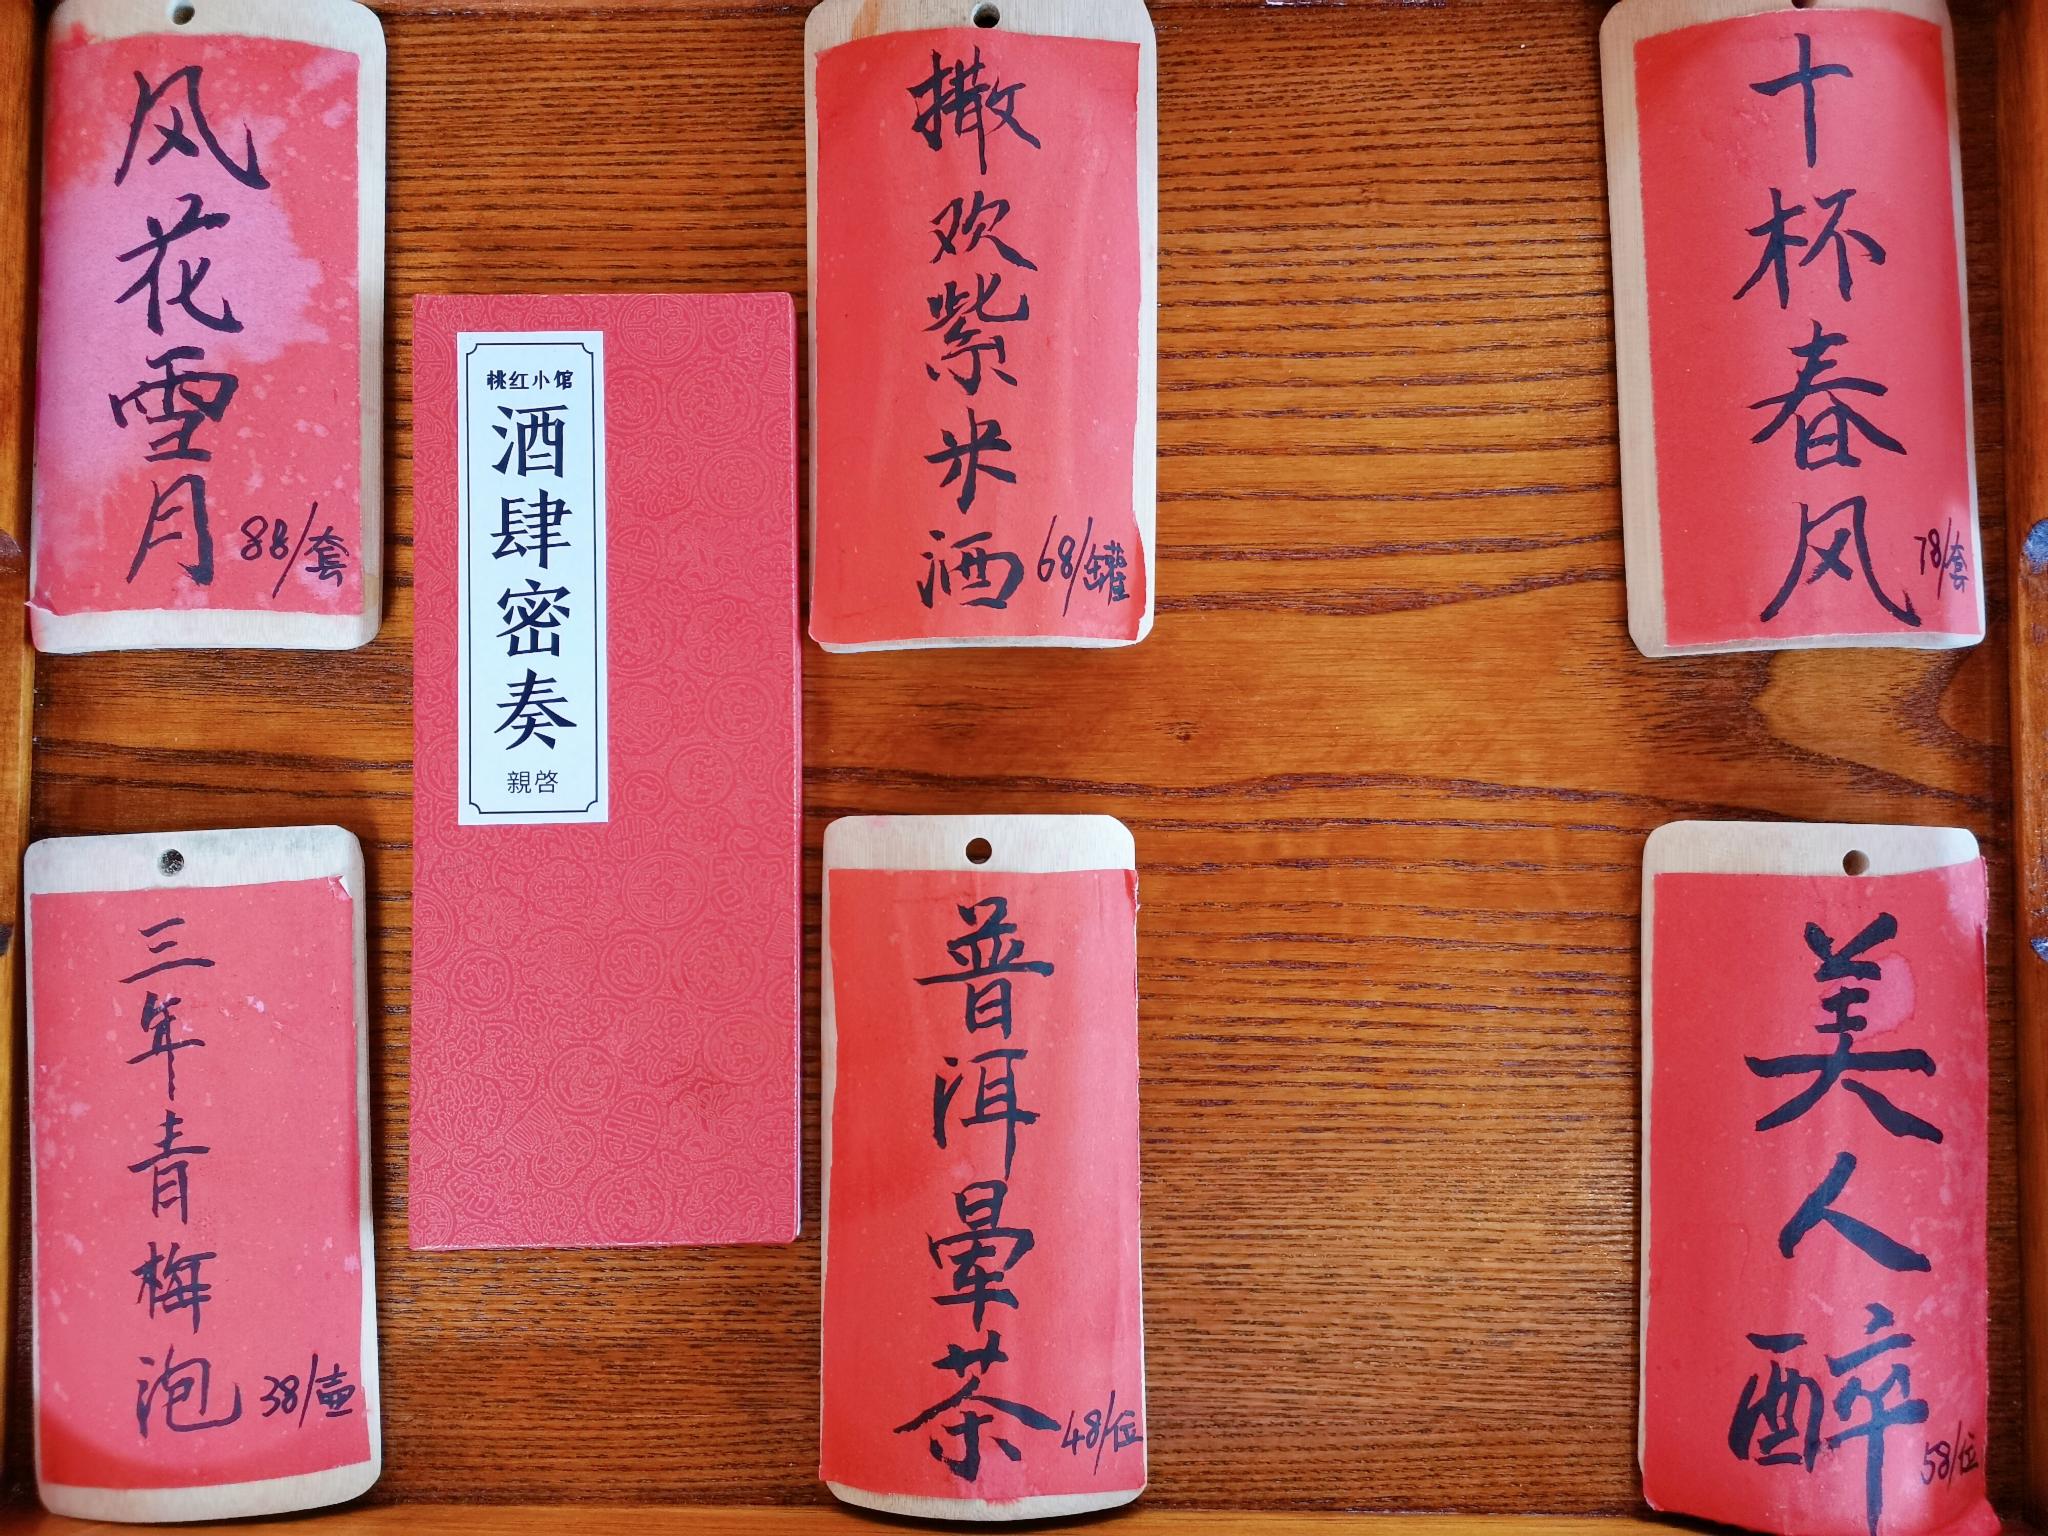 风花雪月
88/套
桃红小馆
酒肆密奏
親啓
撒欢紫米酒
68/罐
十杯春风
78/套
三年青梅泡
38/壶
普洱晕茶
48/位
美人醉
58/位